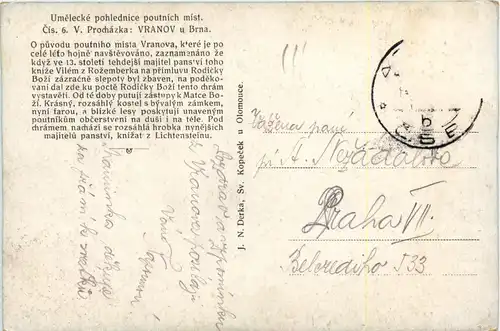 Umělecké pohlednice poutních míst.
Čís. 6. V. Procházka: VRANOV u Brna.
O původu poutního místa Vranova, které je po
celé léto hojně navštěvováno, zaznamenáno že
když ve 13. století tehdejší majitel panství toho
kníže Vilém z Rožemberka na přímluvu Rodičky
Boží zázračně slepoty byl zbaven, na poděko-
vání dal zde ku poctě Rodičky Boží tento chrám
vystavěti. Od té doby putují zástupy k Matce Bo-
ží. Krásný, rozsáhlý kostel s bývalým zámkem,
nyní farou, a blízké lesy poskytují unaveným
poutníkům občerstvení na duši i na těle. Pod
chrámem nachází se rozsáhlá hrobka nynějších
majitelů panství, knížat z Lichtensteinu.
J. N. Derka, Sv. Kopeček u Olomouce.
Vážená paní
pí A. Nezádalova
Praha VII.
Belcrediho 533
Pozdrav a vzpomínku
z Vranova posílají
Maminka děkuje